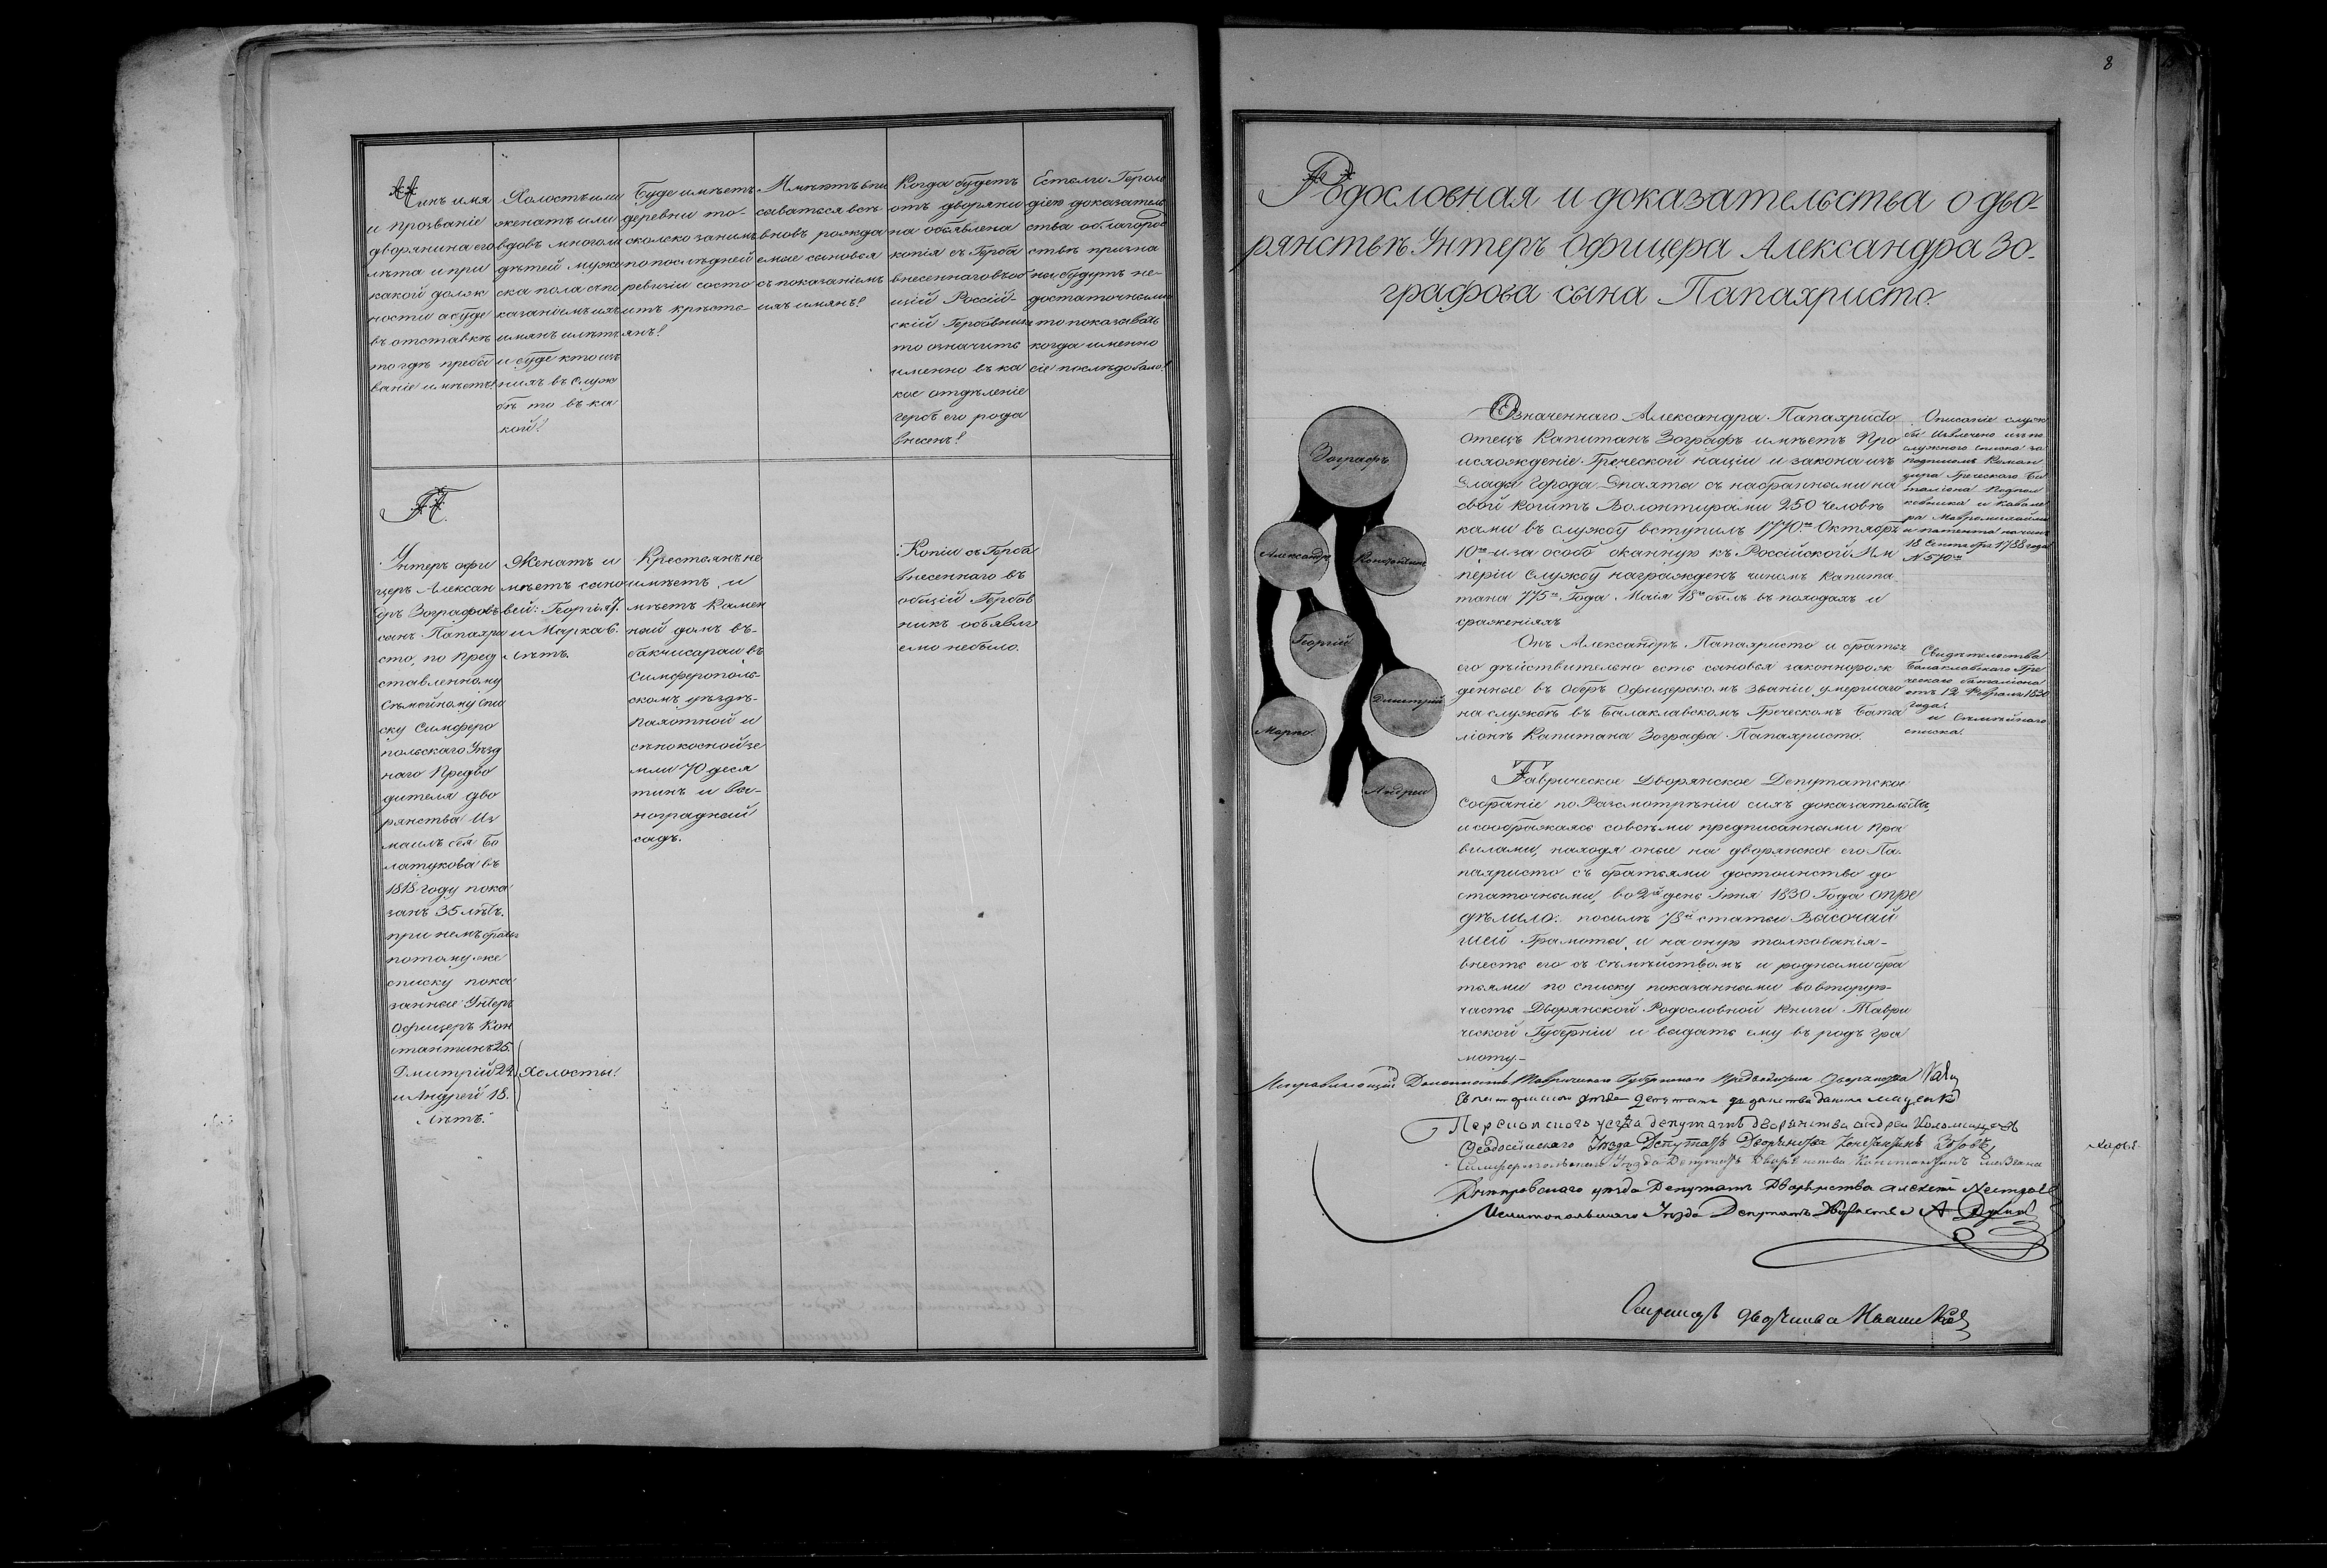 Чинъ имя
и прозваніе
дворянина его
лѣта и при
какой долж
ности а буде
въ отставкѣ
то гдѣ пребы
ваніе имѣетъ?
Холостъ или
женатъ или
вдовъ многоли
дѣтей муже
ска пола съпо
казаніемъ ихъ
имянъ илѣтъ
и буде кто изъ
нихъ въ служ
бѣ то въ ка
кой?
Буде имѣетъ
деревни то-
сколско занимъ
по послѣдней
ревизіи состо
итъ кръстъ-
янъ?
Имѣютъ впи
сыватся всѣ
вновъ рожда
емые сыновья
съ показаніемъ
ихъ имянъ?
Когда будетъ
отъ дворяни
на объявлена
копія съ Герба
внесеннаго въ об
щій Россій-
скій Гербовникъ
то означить
именно въ ка
кое отдѣленіе
гербъ его рода
внесенъ?
Естьли Герол
діею доказатель
ства облагород
ствѣ призна
ны будутъ не-
достаточными
то показывать
когда именно
сіе послѣдовало?
П.
Унтеръ офи
церъ Алексан
дръ Зографовъ
сынъ Папахри
сто, по пред
ставленному
Съмейному спи
ску Симферо
польскаго Уѣзд
наго Предво
дителя дво
рянства Из
маилъ бея Бо
латукова въ
1818 году пока
занъ 35 лѣтъ.
при немъ братья
потому же
списку пока
занные Унтеръ
Офицеръ Кон
стантинъ 25.
Дмитрій 24.
и Андрей 18.
лѣтъ.
Женатъ и
мѣетъ сыно
вей: Георгія 7.
и Марка 6.
лѣтъ.
Холосты.
Крестьянъ не
имѣетъ, и
мѣетъ камен
ный домъ въ-
бакчисараи въ
Симферополь-
скомъ уѣздѣ-
пахотной и
сѣнокосной зе
мли 70 деся
тинъ и ви-
ноградный
садъ.
Копіи съ Герба
внесеннаго въ
общій Гербов
никъ объявля
емо небыло.
8
Родословная и доказательства о дво-
рянствѣ Унтеръ Офицера Александра Зо-
графова сына Папахристо.
Зографъ
Александръ
Константинъ
Георгій
Дмитрій
Марко.
Андрей
Означеннаго Александра Папахристо
отецъ Капитанъ Зографъ имѣетъ Про
исхожденіе Греческой націи и закона изъ
Елады Города Эпаята съ набранными на
свой коштъ Волонтирами 250 человѣ
ками въ службу вступилъ 1770го Октября
10го и за особо оканную къ Россійской Им
періи службу награжденъ чиномъ Капита
тана 775го Года Маія 18го былъ въ походахъ и
сраженіяхъ
Описаніе служ
бы извлечено изъ по
служнаго списка за
подписомъ Коман
дира Греческаго Ба
таліона Подпол
ковника и Кавале
ра
и патента на чинъ
18 Сентября 1788 года
N 570м
Онъ Александръ Папахристо и братья
его дѣйствительно есть сыновья законнорож
денные въ Оберъ Офицерскомъ званіи умершаго
на службѣ въ Балаклавскомъ Греческомъ Бата
ліонѣ Капитана Зографа Папахристо.
Свидѣтельства
Балаклавскаго Гре
ческаго баталіона
отъ 12 Февраля 1830
года.
и Съмейнаго
списка.
Таврическое Дворянское Депутатское
Собраніе по Разсмотрѣніи сихъ доказательствъ,
и сообразжаясь совсѣми предписанными пра
вилами, находя оные на дворянское его Па-
пахристо съ братьями достоинство до
статочными, во 2й день Іюня 1830 Года опре
дѣлило: посилѣ 78й статьи Высочай
шей Грамоты, и на оную толкованія-
внесть его съ Съмѣйствомъ и родными бра
тьями по списку показанными во вторую-
часть Дворянской Родословной книги Таври
ческой Губерніи и выдать ему въ родъ гра
моту.-
Исправляющій Должность Таврическаго Губернскаго Предводителя Дворянства
Перекопского уезда депутатъ дворянства андреи
Феодосійскаго Уѣзда Депутатъ Дворянства
Симферопольскаго Уѣзда Депутатъ Дворянства Константинъ
Днѣпровскаго уѣзда Депутатъ Дворянства алексѣй
Мелитопольскаго Уѣзда Депутатъ Дворянства А
Секретарь дворянства